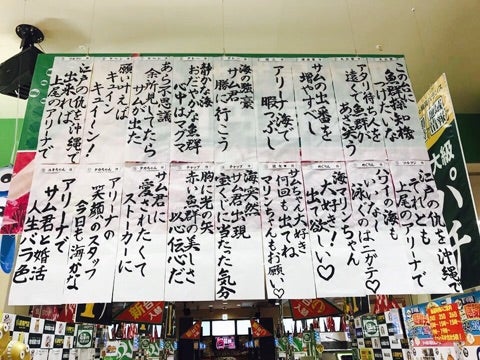 この台に
魚群探知機
つけたいな
遠くで魚群が
あざ笑う
サムの出番を
増やすべし
アリーナ海で
暇つぶし
海の強豪
サム君
勝に行こう
静かな海
おだやかな魚群
心中はマグマ
あら不思議
余所見してたら
サムが出た
願い叶えば
キュイン
キュイン!
江戸の仇を沖縄で
出来れば
上尾のアリーナで
江戸の仇を沖縄で
でれども
上尾のアリーナで
ハワイの海も
いいな〜
泳ぐのはニガテ♡
海マリンちゃん
大好き!
出て欲しい♡
サム大好き
今回も出てね
マリンちゃんもお願い♡
海突然
サム君出現
宝くじに当たった気分
胸に光の矢
赤い魚群の美しさ
以心伝心だ
サム君に
愛されたくて
ストーカーに
アリーナの
笑顔のスタッフ
今日も海かな
アリーナで
サム君と婚活
人生バラ色
大級。